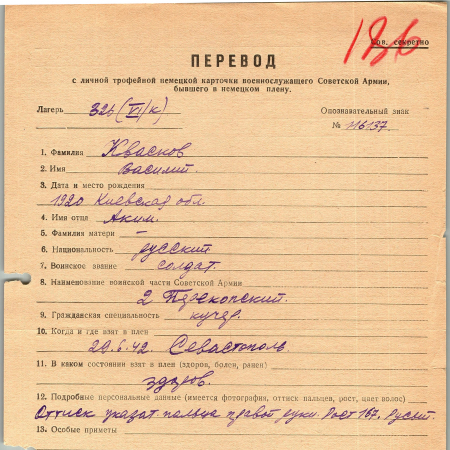 186
Сов. секретно
ПЕРЕВОД
с личной трофейной немецкой карточки военнослужащего Советской Армии,
бывшего в немецком плену.
Лагерь 326 (VI/к) Опознавательный знак
№ 116137
1. Фамилия Квасков
2. Имя Василий
3. Дата и место рождения
1920 Киевская обл.
4. Имя отца Аким.
5. Фамилия матери —
6. Национальность русский
7. Воинское звание солдат.
8. Наименование воинской части Советской Армии
2 Перекопский.
9. Гражданская специальность кучер.
10. Когда и где взят в плен
29.6.42 Севастополь.
11. В каком состоянии взят в плен (здоров, болен, ранен)
здоров.
12. Подробные персональные данные (имеется фотография, оттиск пальцев, рост, цвет волос)
Оттиск указат. пальца правой руки. Рост 167, русый.
13. Особые приметы